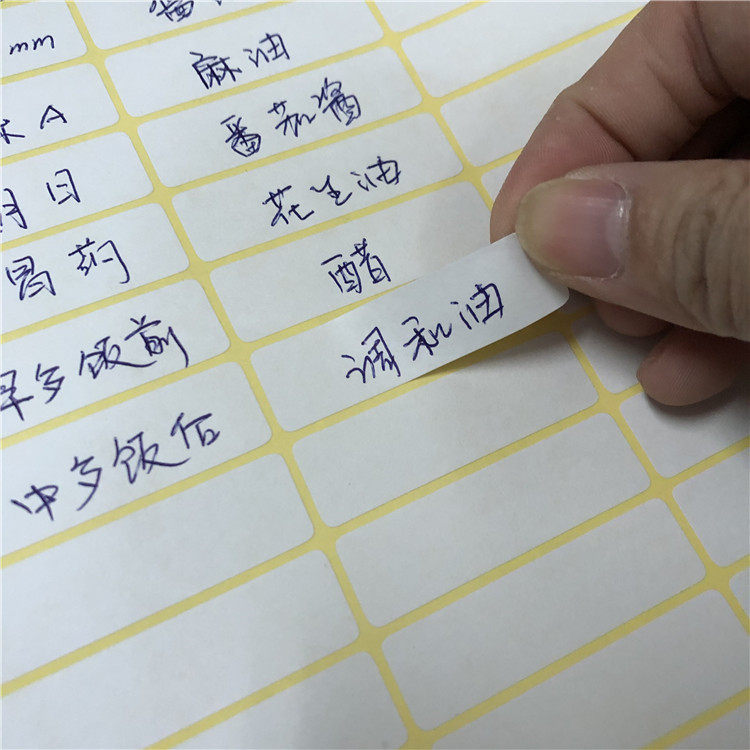 mm
A
月日
胃药
早多饭前
中多饭后
麻油
番茄酱
花生油
醋
调和油